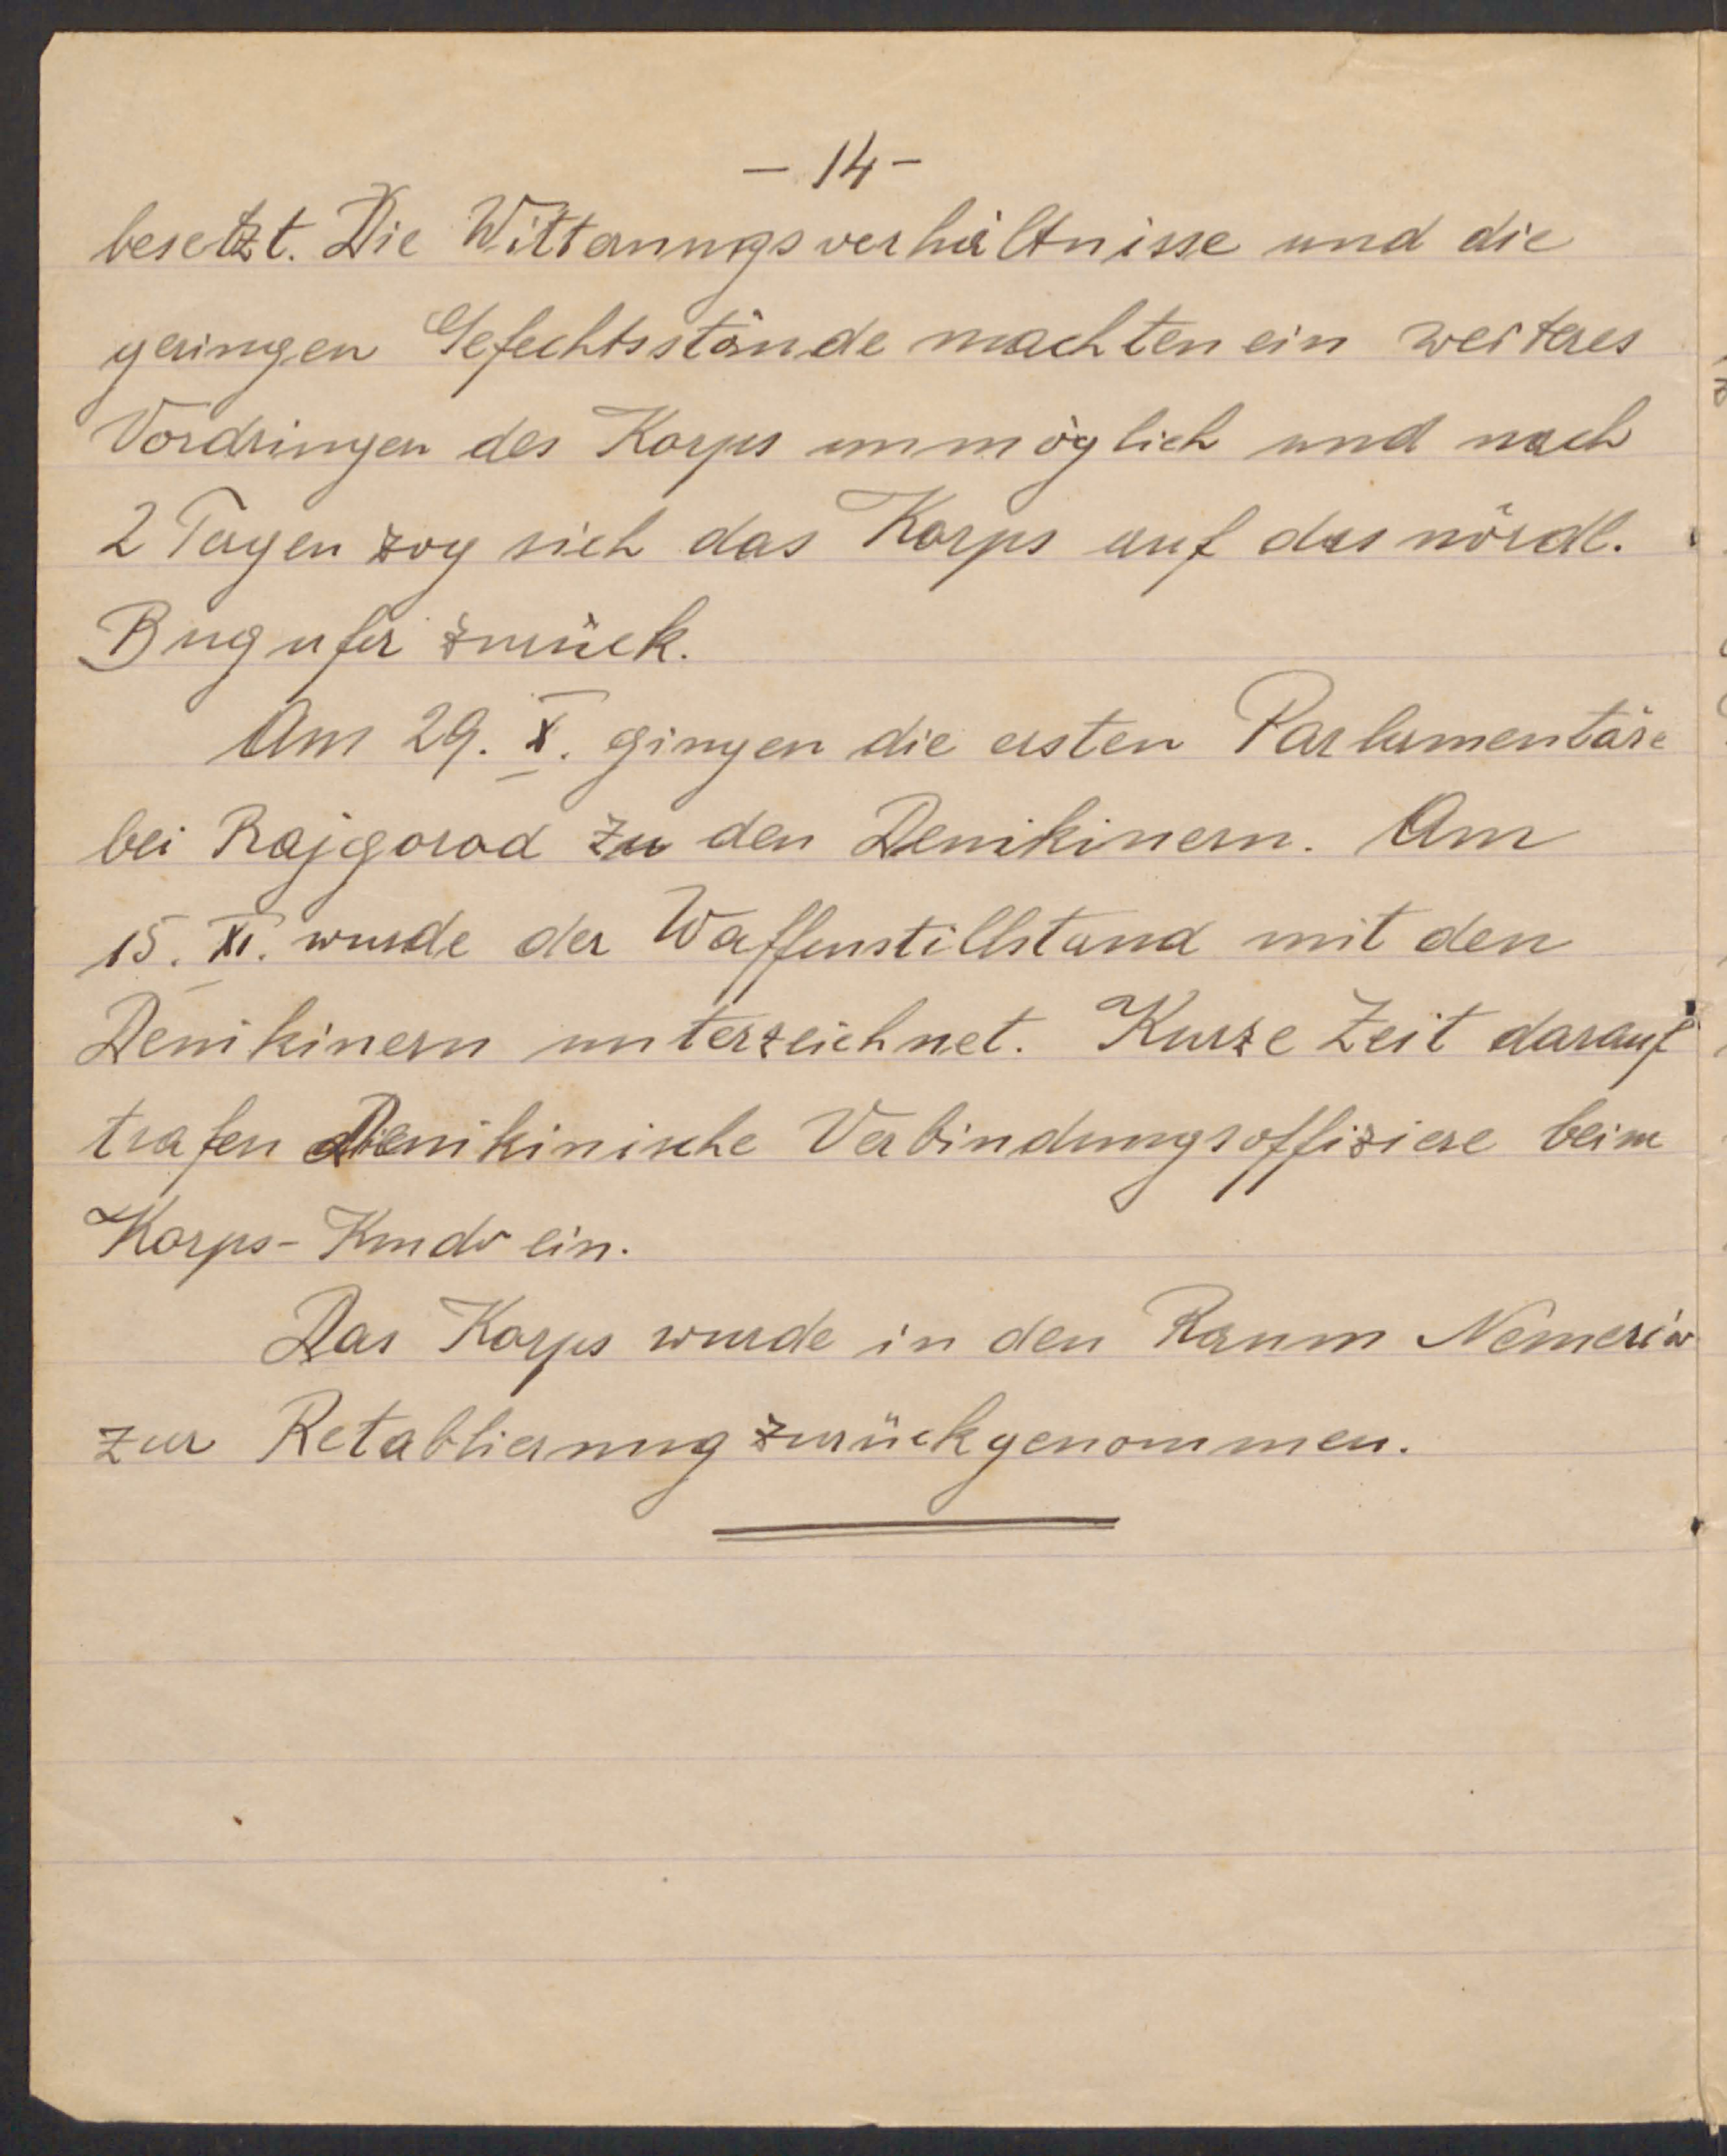 - 14 -
besetzt. Die Witterungsverhältnisse und die
geringen Gefechtsstände machten ein weiteres
Vordringen des Korps unmöglich und nach
2 Tagen zog sich das Korps auf das nördl.
Bugufer zurück.
Am 29. X. gingen die ersten Parlamentäre
bei Rajgorod zu den Denikinern. Am
15. XI. wurde der Waffenstillstand mit den
Denikinern unterzeichnet. Kurze Zeit darauf
trafen Denikinische Verbindungsoffiziere beim
Korps-Kmdo ein.
Das Korps wurde in den Raum Nemeriw
zur Retablierung zurückgenommen.